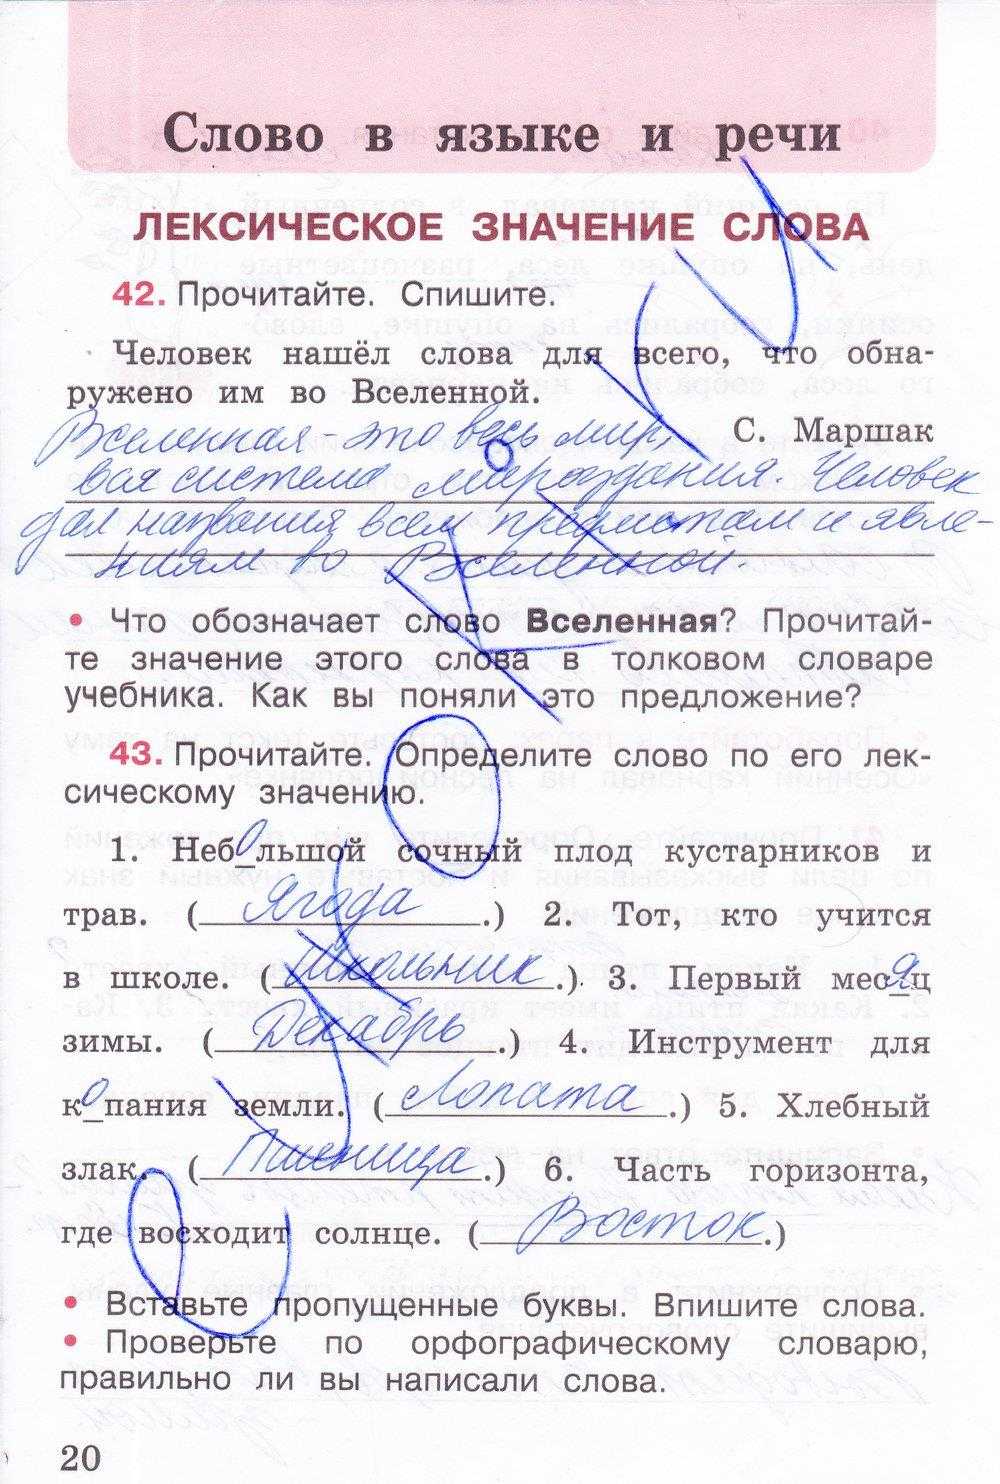 Слово в языке и речи
ЛЕКСИЧЕСКОЕ ЗНАЧЕНИЕ СЛОВА
42. Прочитайте. Спишите.
Человек нашёл слова для всего, что обна-
ружено им во Вселенной.
С. Маршак
Вселенная - это весь мир,
вся система мироздания. Человек
дал названия всем предметам и явле-
ниям во Вселенной.
• Что обозначает слово Вселенная? Прочитай-
те значение этого слова в толковом словаре
учебника. Как вы поняли это предложение?
43. Прочитайте. Определите слово по его лек-
сическому значению.
1. Небольшой сочный плод кустарников и
трав. (Ягода.) 2. Тот, кто учится
в школе. (Школьник.) 3. Первый месяц
зимы. (Декабрь.) 4. Инструмент для
копания земли. (Лопата.) 5. Хлебный
злак. (Пшеница.) 6. Часть горизонта,
где восходит солнце. (Восток.)
• Вставьте пропущенные буквы. Впишите слова.
• Проверьте по орфографическому словарю,
правильно ли вы написали слова.
20